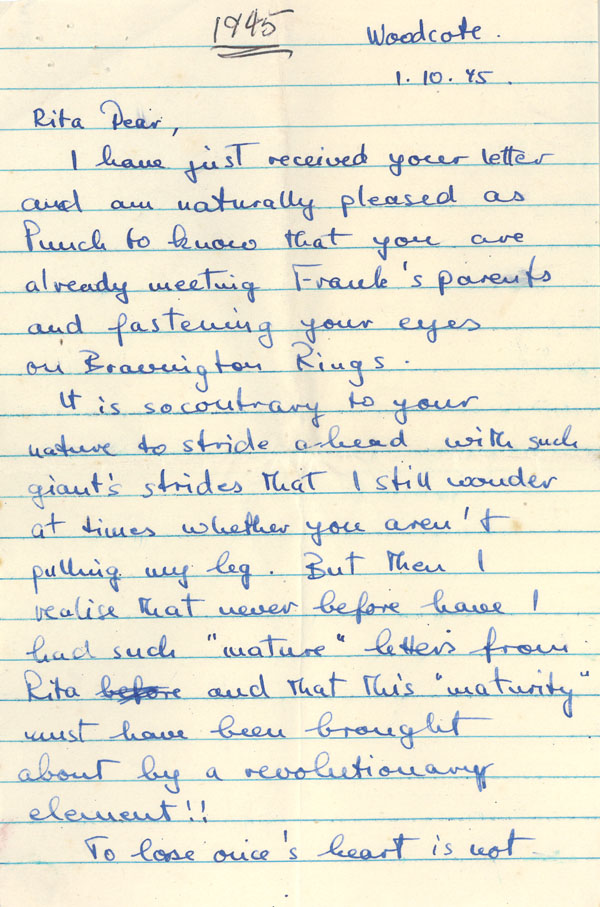 1945
Woodcote.
1.10.45.
Rita Dear,
I have just received your letter
and am naturally pleased as
Punch to know that you are
already meeting Frank's parents
and fastening your eyes
on Bravington Rings.
It is so contrary to your
nature to stride ahead with such
giant's strides that I still wonder
at times whether you aren't
pulling my leg. But then I
realise that never before have I
had such "mature" letters from
Rita before and that this "maturity"
must have been brought
about by a revolutionary
element!!
To lose once's heart is not